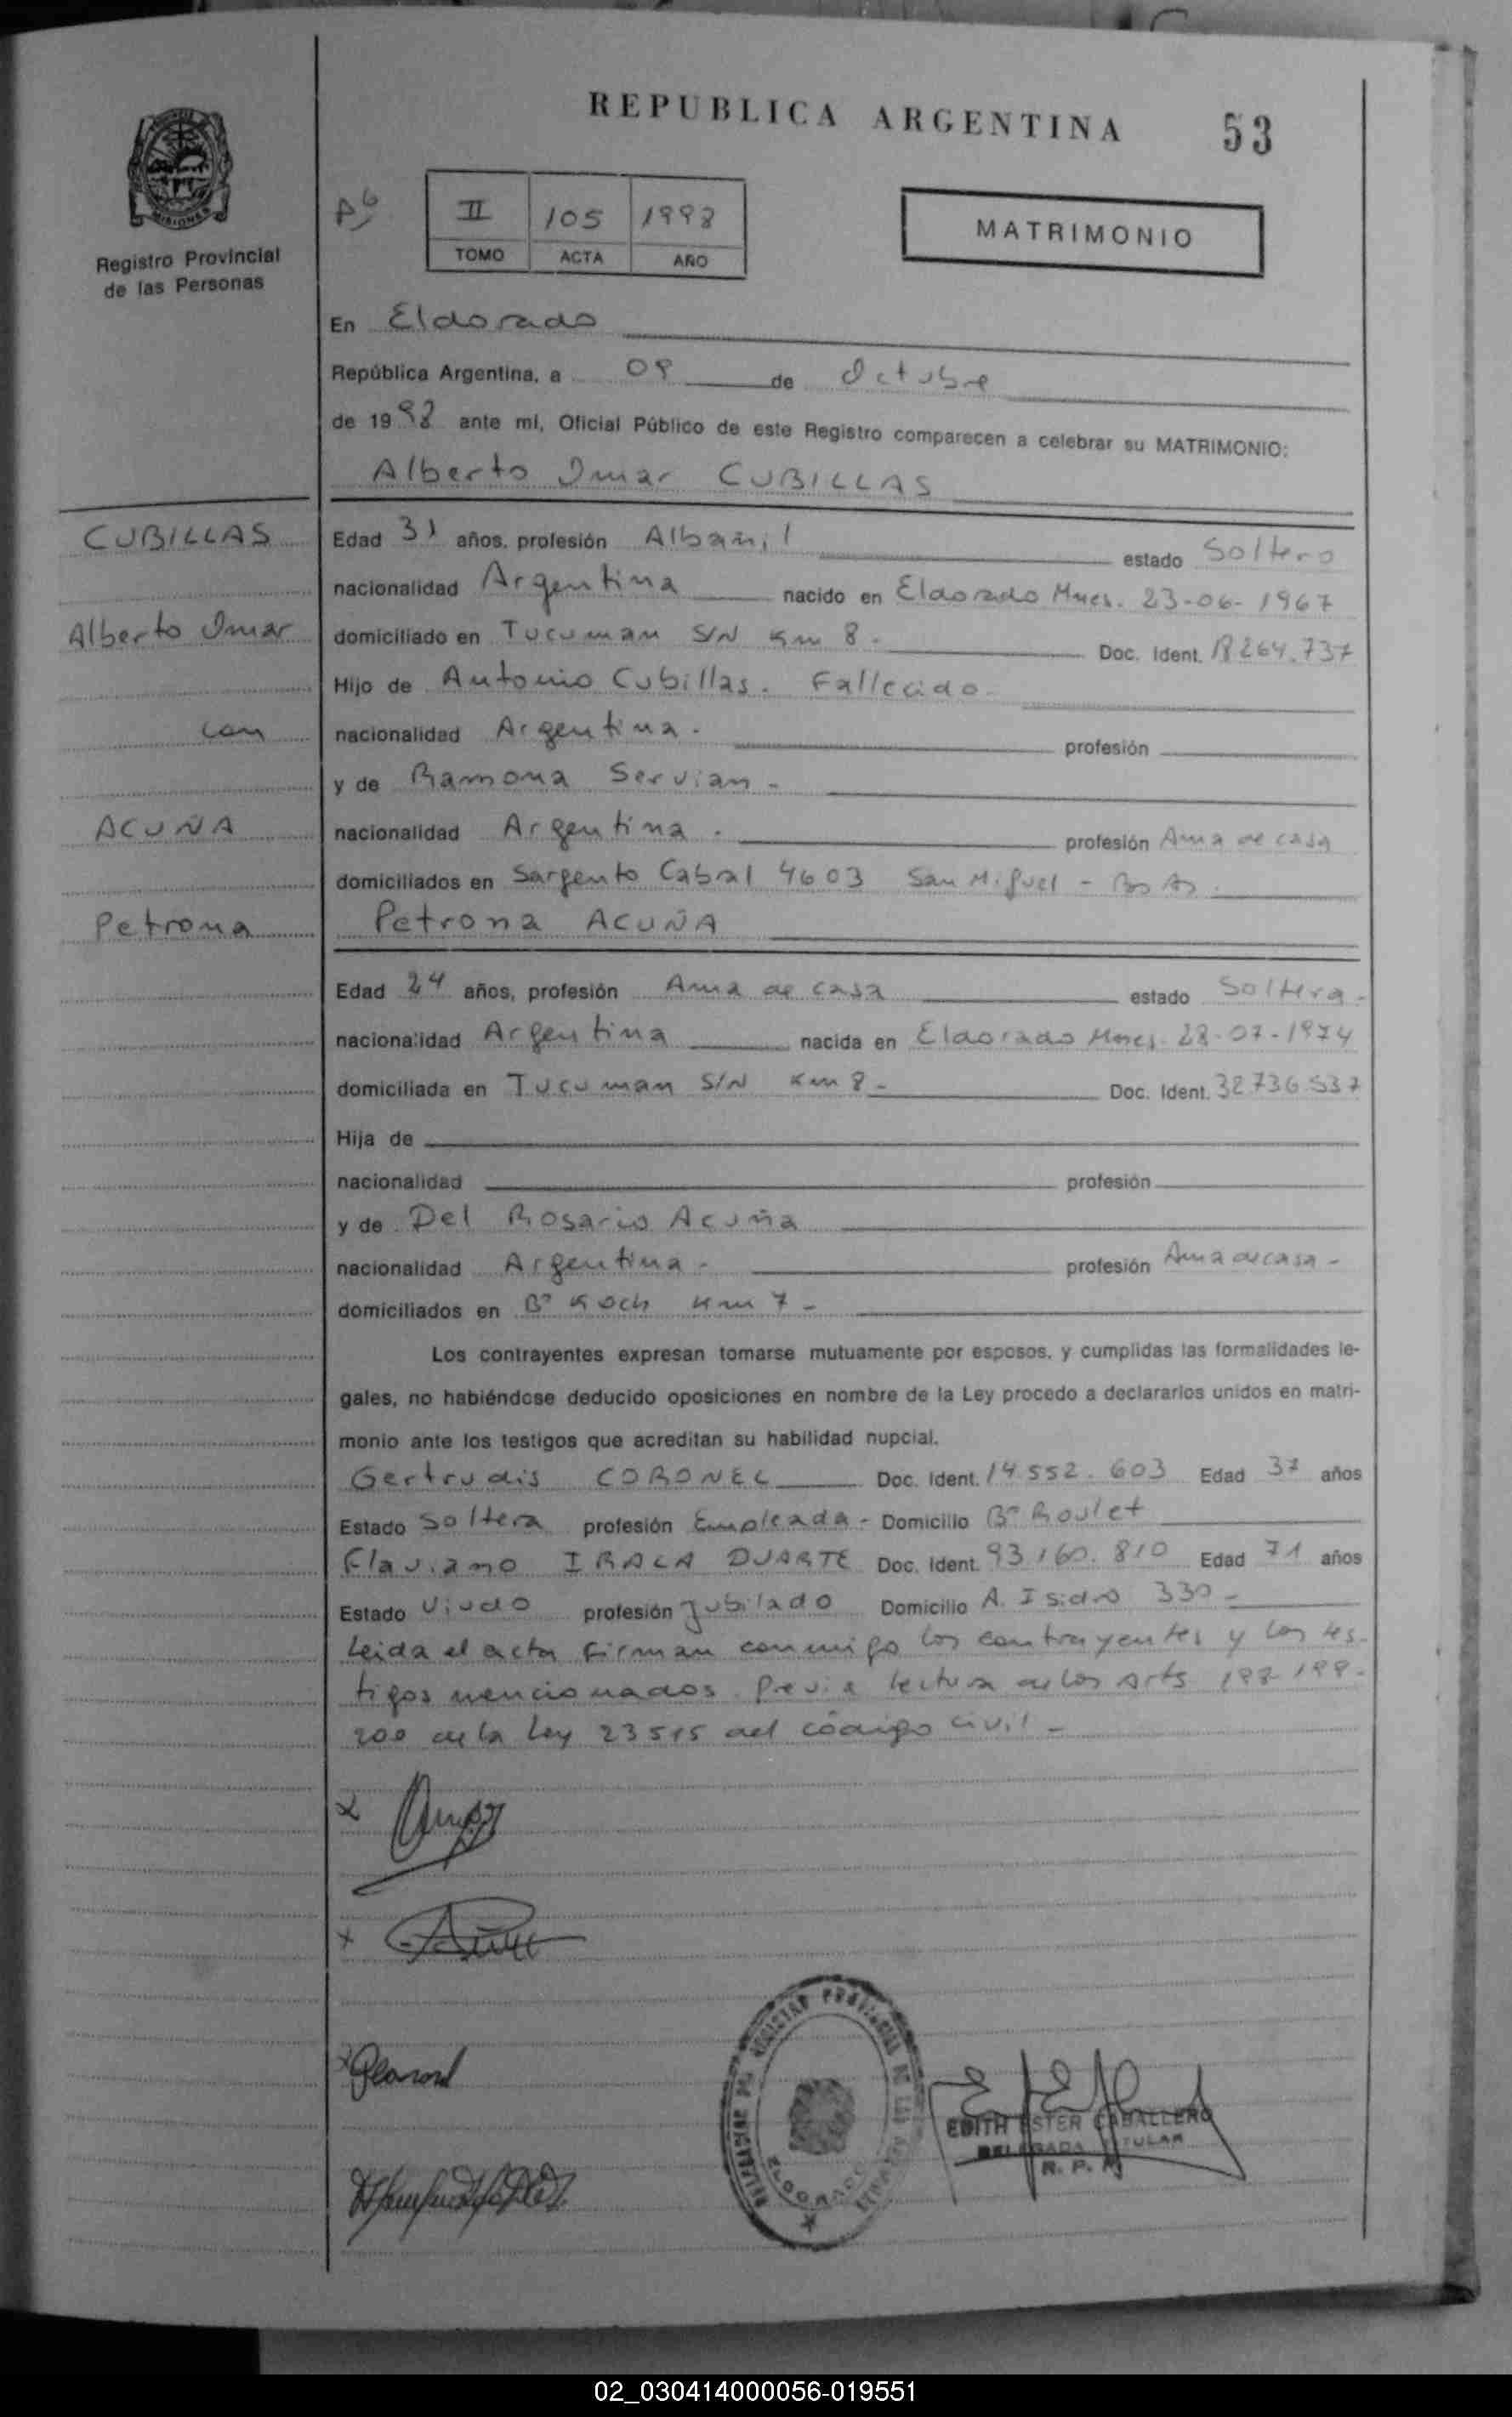 REPUBLICA ARGENTINA
53
MISIONES
Registro Provincial
de las Personas
II 105 1998
TOMO ACTA AÑO
MATRIMONIO
En Eldorado
República Argentina, a 09 de Octubre
de 1998 ante mi, Oficial Público de este Registro comparecen a celebrar su MATRIMONIO:
Alberto Omar CUBILLAS
CUBILLAS
Alberto Omar
con
ACUÑA
Petrona
Edad 31 años, profesión Albañil estado Soltero
nacionalidad Argentina nacido en Eldorado Mnes. 23-06-1967
domiciliado en Tucuman S/N Km 8. Doc. Ident. 18264.737
Hijo de Antonio Cubillas. Fallecido
nacionalidad Argentina. profesión
y de Ramona Servian -
nacionalidad Argentina. profesión Ama de casa
domiciliados en Sargento Cabral 4603 San Miguel - Bs As.
Petrona ACUÑA
Edad 24 años, profesión Ama de casa estado Soltera -
nacionalidad Argentina nacida en Eldorado Mnes. 28-07-1974
domiciliada en Tucuman S/N Km 8 - Doc. Ident. 32.736.537
Hija de
nacionalidad profesión
y de Del Rosario Acuña
nacionalidad Argentina - profesión Ama de casa -
domiciliados en Bº Koch Km 7 -
Los contrayentes expresan tomarse mutuamente por esposos, y cumplidas las formalidades le-
gales, no habiéndose deducido oposiciones en nombre de la Ley procedo a declararlos unidos en matri-
monio ante los testigos que acreditan su habilidad nupcial.
Gertrudis CORONEL Doc. Ident. 14.552.603 Edad 37 años
Estado Soltera profesión Empleada - Domicilio Bº Roulet
Flaviano IRALA DUARTE Doc. Ident. 93.160.810 Edad 71 años
Estado Viudo profesión Jubilado Domicilio A. Isidro 330 -
Leida el acta firman conmigo los contrayentes y los tes-
tigos mencionados. Previa lectura de los Arts 198-199-
200 de la Ley 23515 del código civil -
REGISTRO PROVINCIAL DE LAS
ELDORADO
EDITH ESTER CABALLERO
DELEGADA TITULAR
R. P. P.
02_030414000056-019551